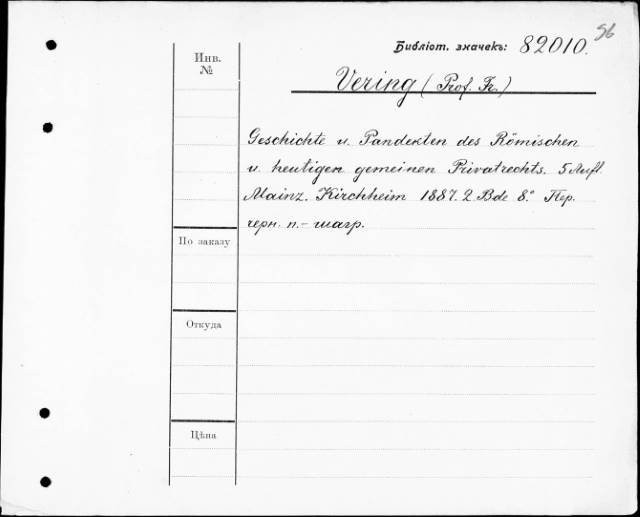 56
Библіот. значекъ: 82010.
Инв.
№
Vering (Prof. Fr.)
Geschichte u. Pandekten des Römischen
u. heutigen gemeinen Privatrechts. 5 Aufl.
Mainz. Kirchheim 1887. 2 Bde 8.° Пер.
черн. п.-шагр.
По заказу
Откуда
Цѣна